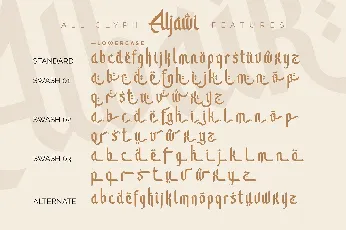 ALL GLYPH Aljawi FEATURES
—LOWERCASE
STANDARD abcdëfghïjklmnöpqrstüvŵxyz
SWASH 01 abcdëfghïjklmnöp
qrstüvŵxyz
SWASH 02 abcdëfghïjklmnöp
qrstüvŵxyz
SWASH 03 abcdëfghïjklmnö
pqrstüvŵxyz
ALTERNATE abcdëfghïjklmnöpqrstüvŵxyz